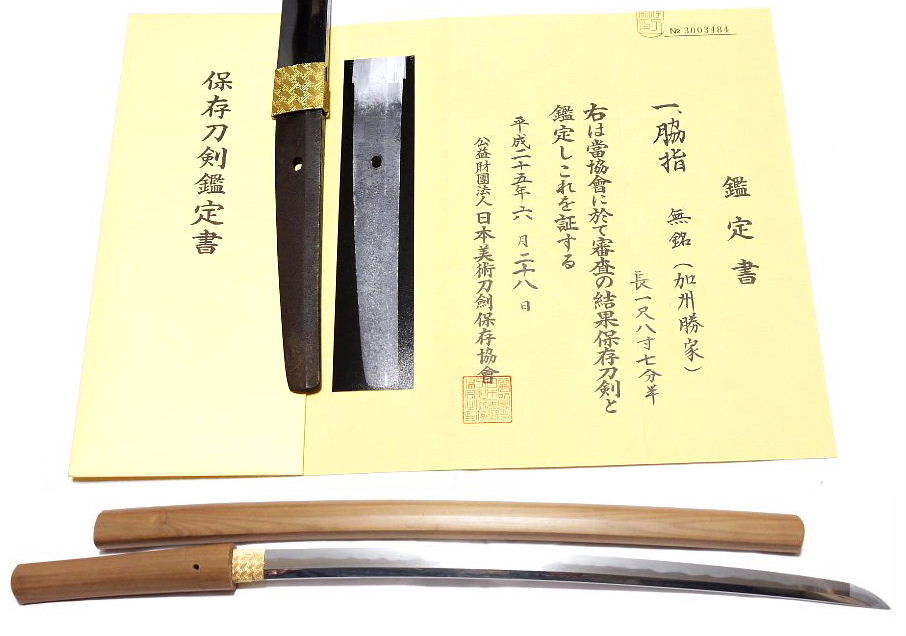 № 3003484
鑑定書
一、脇指 無銘(加州勝家)
長一尺八寸七分半
右は當協會に於て審査の結果保存刀剣と
鑑定しこれを証する
平成二十五年六月二十八日
公益財團法人日本美術刀劍保存協會
保存刀剣鑑定書